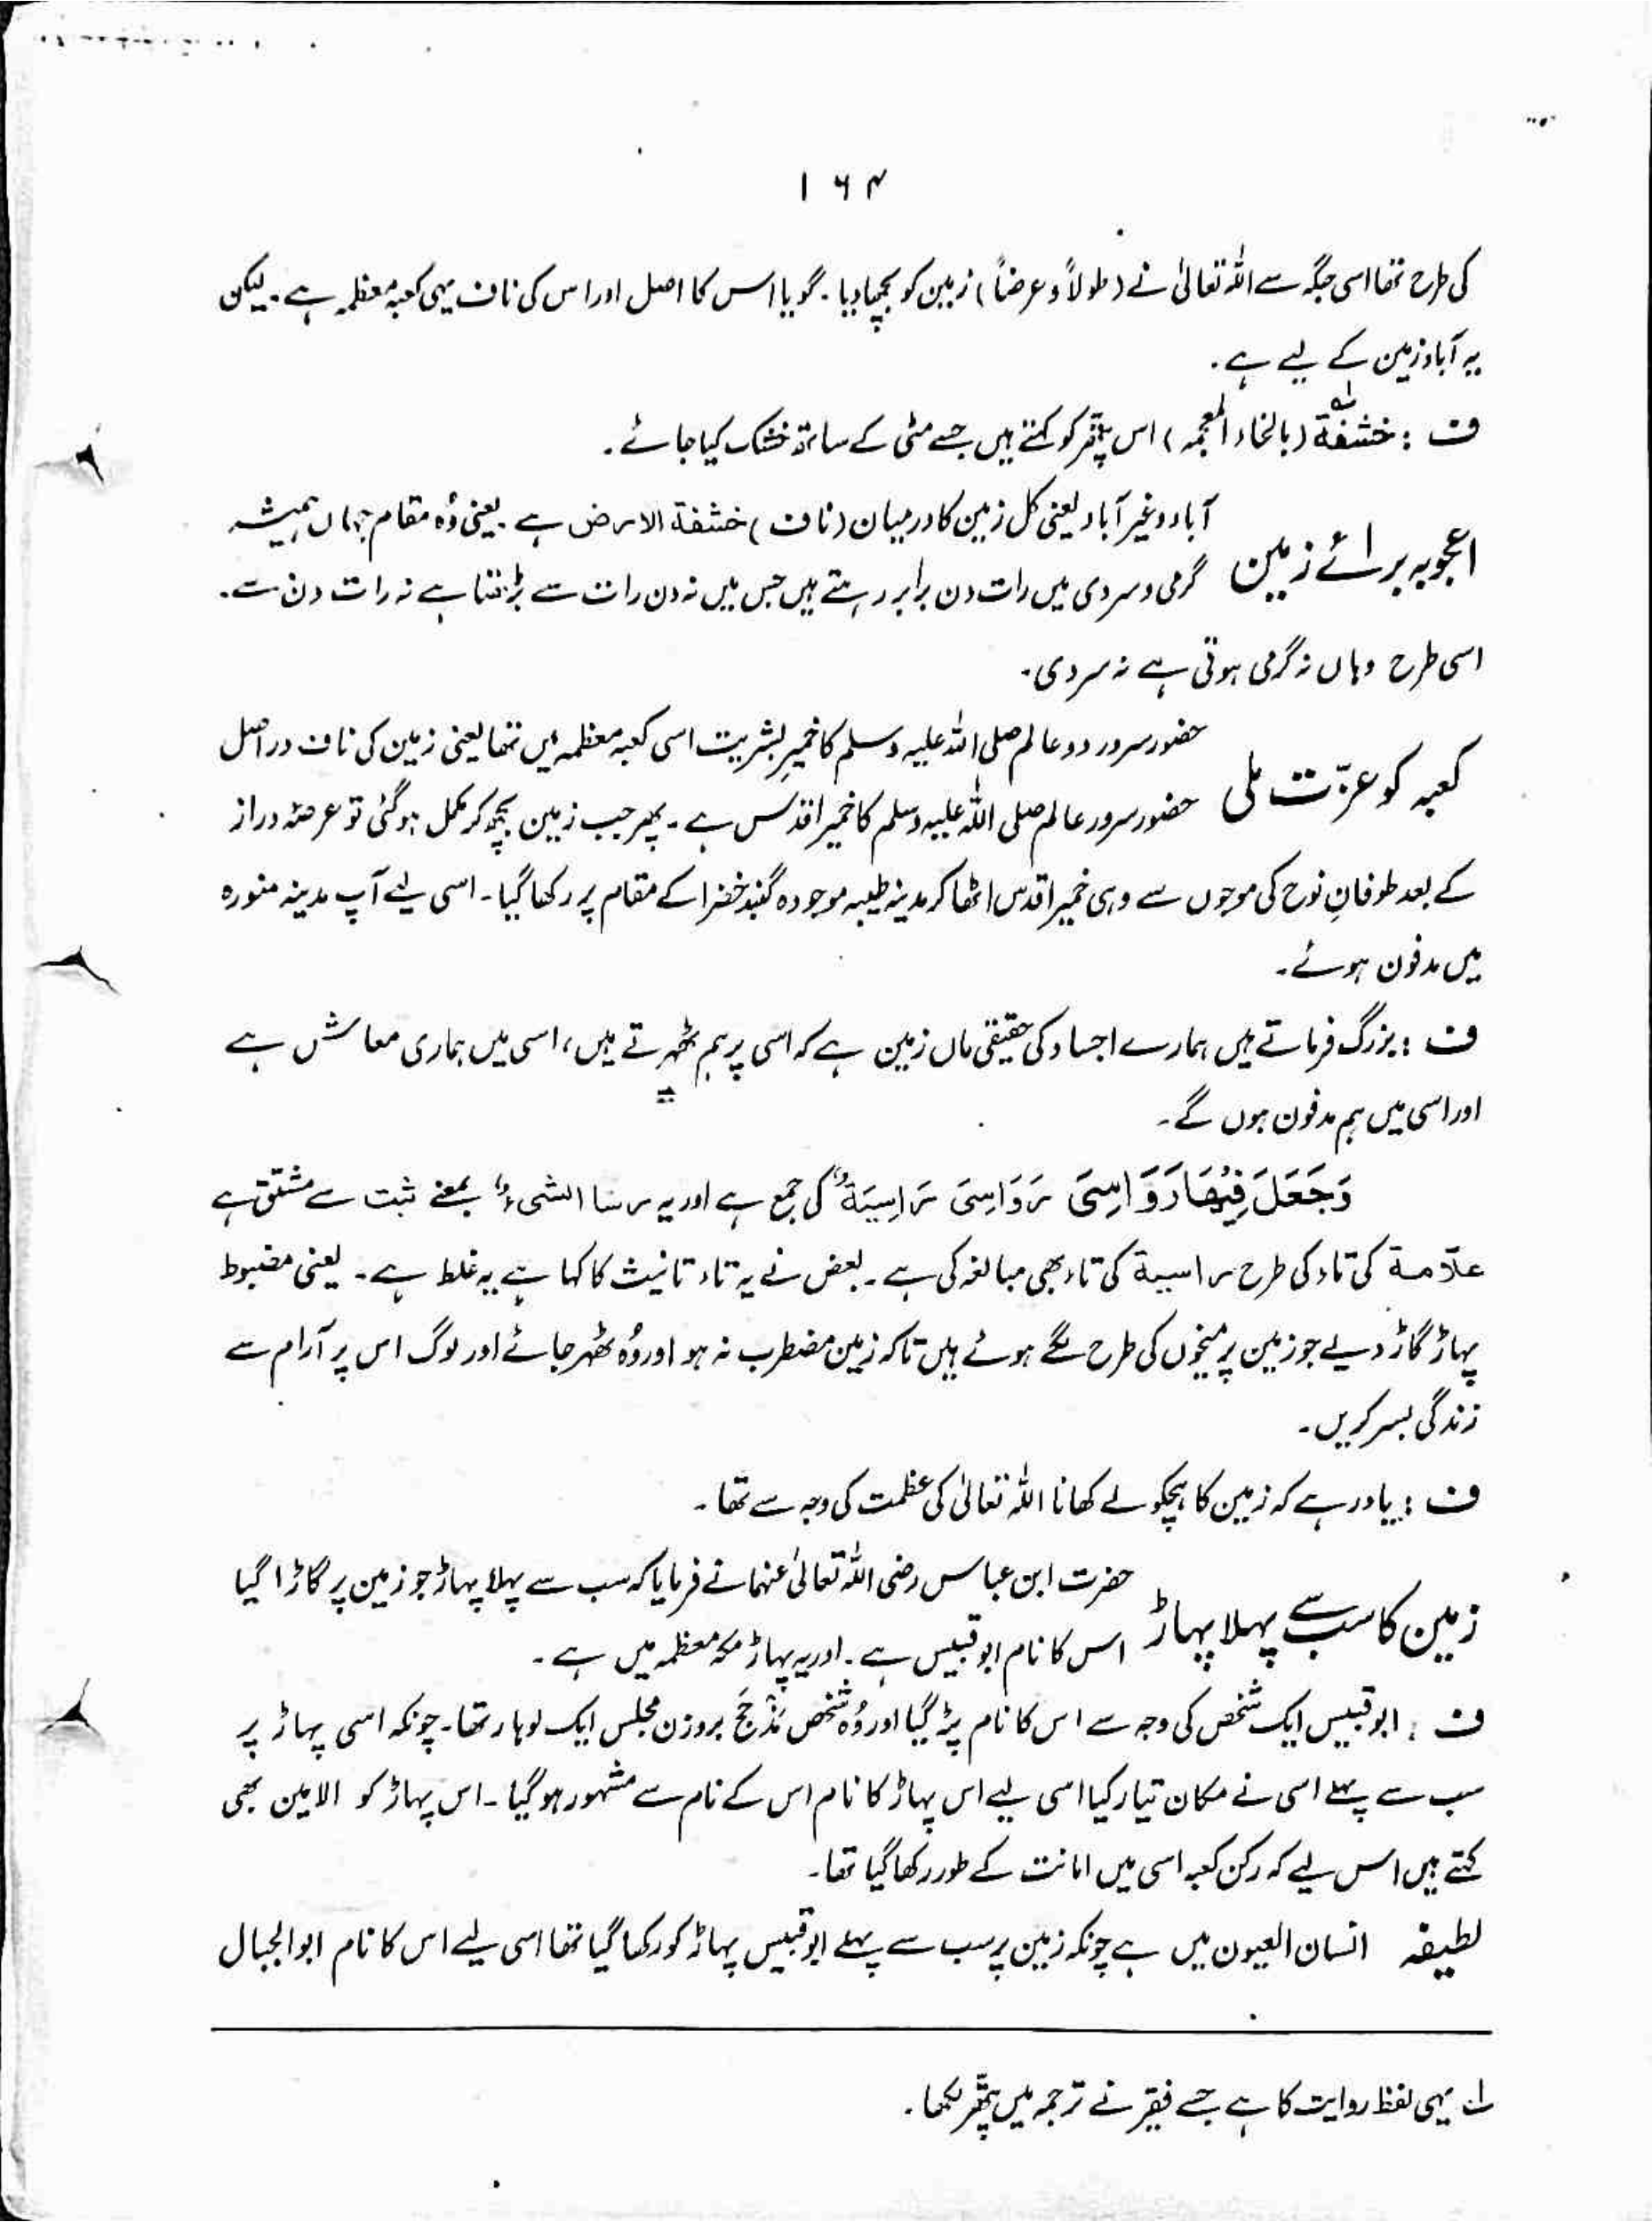 ۱۶۴
کی طرح تھا اسی جگہ سے اللہ تعالیٰ نے (طولاً و عرضاً) زمین کو بچھا دیا۔ گویا اس کا اصل اور اس کی ناف یہی کعبہ معظمہ ہے۔ لیکن
یہ آباد زمین کے لیے ہے۔
ف : خشفة لہ (بالخاء المعجمہ) اس پتھر کو کہتے ہیں جسے مٹی کے ساتھ خشک کیا جائے۔
اعجوبہ برائے زمین
آباد و غیر آباد یعنی کل زمین کا درمیان (ناف) خشفة الارض ہے۔ یعنی وُہ مقام جہاں ہمیشہ
گرمی و سردی میں رات دن برابر رہتے ہیں جس میں نہ دن رات سے بڑھتا ہے نہ رات دن سے۔
اسی طرح وہاں نہ گرمی ہوتی ہے نہ سردی۔
کعبہ کو عزّت ملی
حضور سرور دو عالم صلی اللہ علیہ وسلم کا خمیرِ بشریت اسی کعبہ معظمہ میں تھا یعنی زمین کی ناف در اصل
حضور سرور عالم صلی اللہ علیہ وسلم کا خمیر اقدس ہے۔ پھر جب زمین بچھ کر مکمل ہو گئی تو عرصۂ دراز
کے بعد طوفانِ نوح کی موجوں سے وہی خمیر اقدس اٹھا کر مدینہ طیبہ موجودہ گنبد خضرا کے مقام پر رکھا گیا۔ اسی لیے آپ مدینہ منورہ
میں مدفون ہوئے۔
ف : بزرگ فرماتے ہیں ہمارے اجساد کی حقیقی ماں زمین ہے کہ اسی پر ہم ٹھہرتے ہیں، اسی میں ہماری معاش ہے
اور اسی میں ہم مدفون ہوں گے۔
وَجَعَلَ فِيْهَا رَوَاسِیَ رَوَاسِیَ رَاسِیَةٌ کی جمع ہے اور یہ رسا الشیء بمعنے ثبت سے مشتق ہے
علاّمة کی تاء کی طرح راسیة کی تاء بھی مبالغہ کی ہے۔ بعض نے یہ تاء تانیث کا کہا ہے یہ غلط ہے۔ یعنی مضبوط
پہاڑ گاڑ دیے جو زمین پر میخوں کی طرح لگے ہوئے ہیں تاکہ زمین مضطرب نہ ہو اور وُہ ٹھہر جائے اور لوگ اس پر آرام سے
زندگی بسر کریں۔
ف : یاد رہے کہ زمین کا ہچکولے کھانا اللہ تعالیٰ کی عظمت کی وجہ سے تھا۔
زمین کا سب سے پہلا پہاڑ
حضرت ابن عباس رضی اللہ تعالیٰ عنہما نے فرمایا کہ سب سے پہلا پہاڑ جو زمین پر گاڑا گیا
اس کا نام ابو قبیس ہے۔ اور یہ پہاڑ مکہ معظمہ میں ہے۔
ف : ابو قبیس ایک شخص کی وجہ سے اس کا نام پڑ گیا اور وُہ شخص مَذْحِج بروزن مجلس ایک لوہار تھا۔ چونکہ اسی پہاڑ پر
سب سے پہلے اسی نے مکان تیار کیا اسی لیے اس پہاڑ کا نام اس کے نام سے مشہور ہو گیا۔ اس پہاڑ کو الامین بھی
کہتے ہیں اس لیے کہ رکن کعبہ اسی میں امانت کے طور رکھا گیا تھا۔
لطیفہ انسان العیون میں ہے چونکہ زمین پر سب سے پہلے ابو قبیس پہاڑ کو رکھا گیا تھا اسی لیے اس کا نام ابو الجبال
لہ یہی لفظ روایت کا ہے جسے فقیر نے ترجمہ میں پتھر لکھا۔